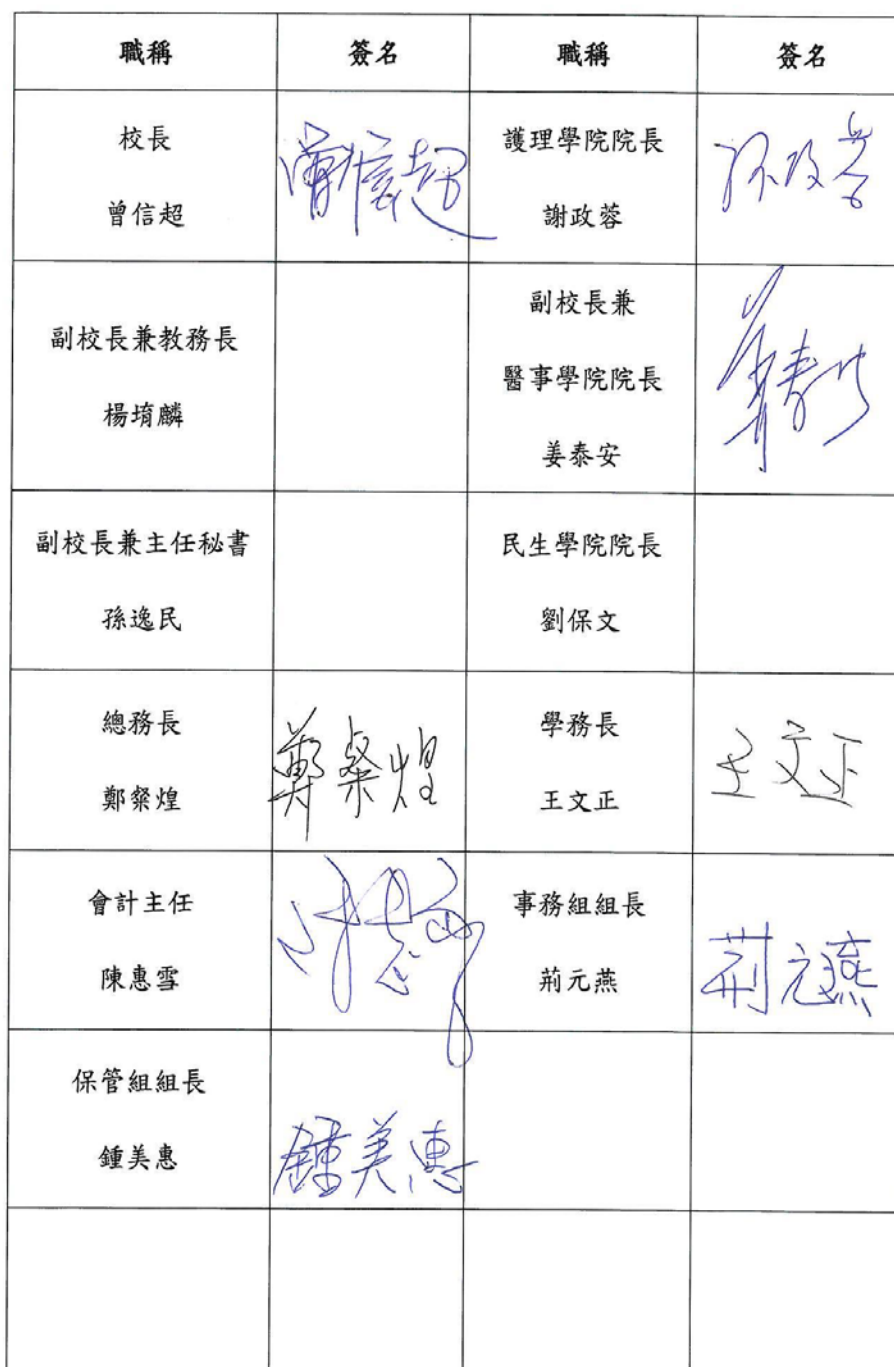 職稱 簽名 職稱 簽名
校長
曾信超
護理學院院長
謝政蓉
副校長兼教務長
楊堉麟
副校長兼
醫事學院院長
姜泰安
副校長兼主任秘書
孫逸民
民生學院院長
劉保文
總務長
鄭粲煌
鄭粲煌
學務長
王文正
王文正
會計主任
陳惠雪
事務組組長
荊元燕
荊元燕
保管組組長
鍾美惠
鍾美惠